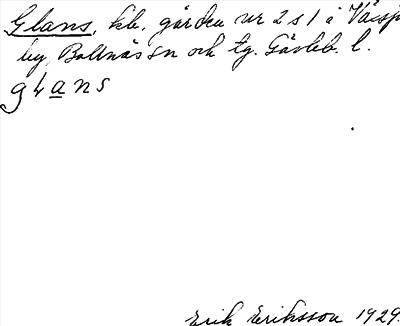 Glans, kb. gården nr 2 s 1 i Växsjö
by, Bollnäs sn och tg. Gävleb. l.
gLans
Erik Eriksson 1929.